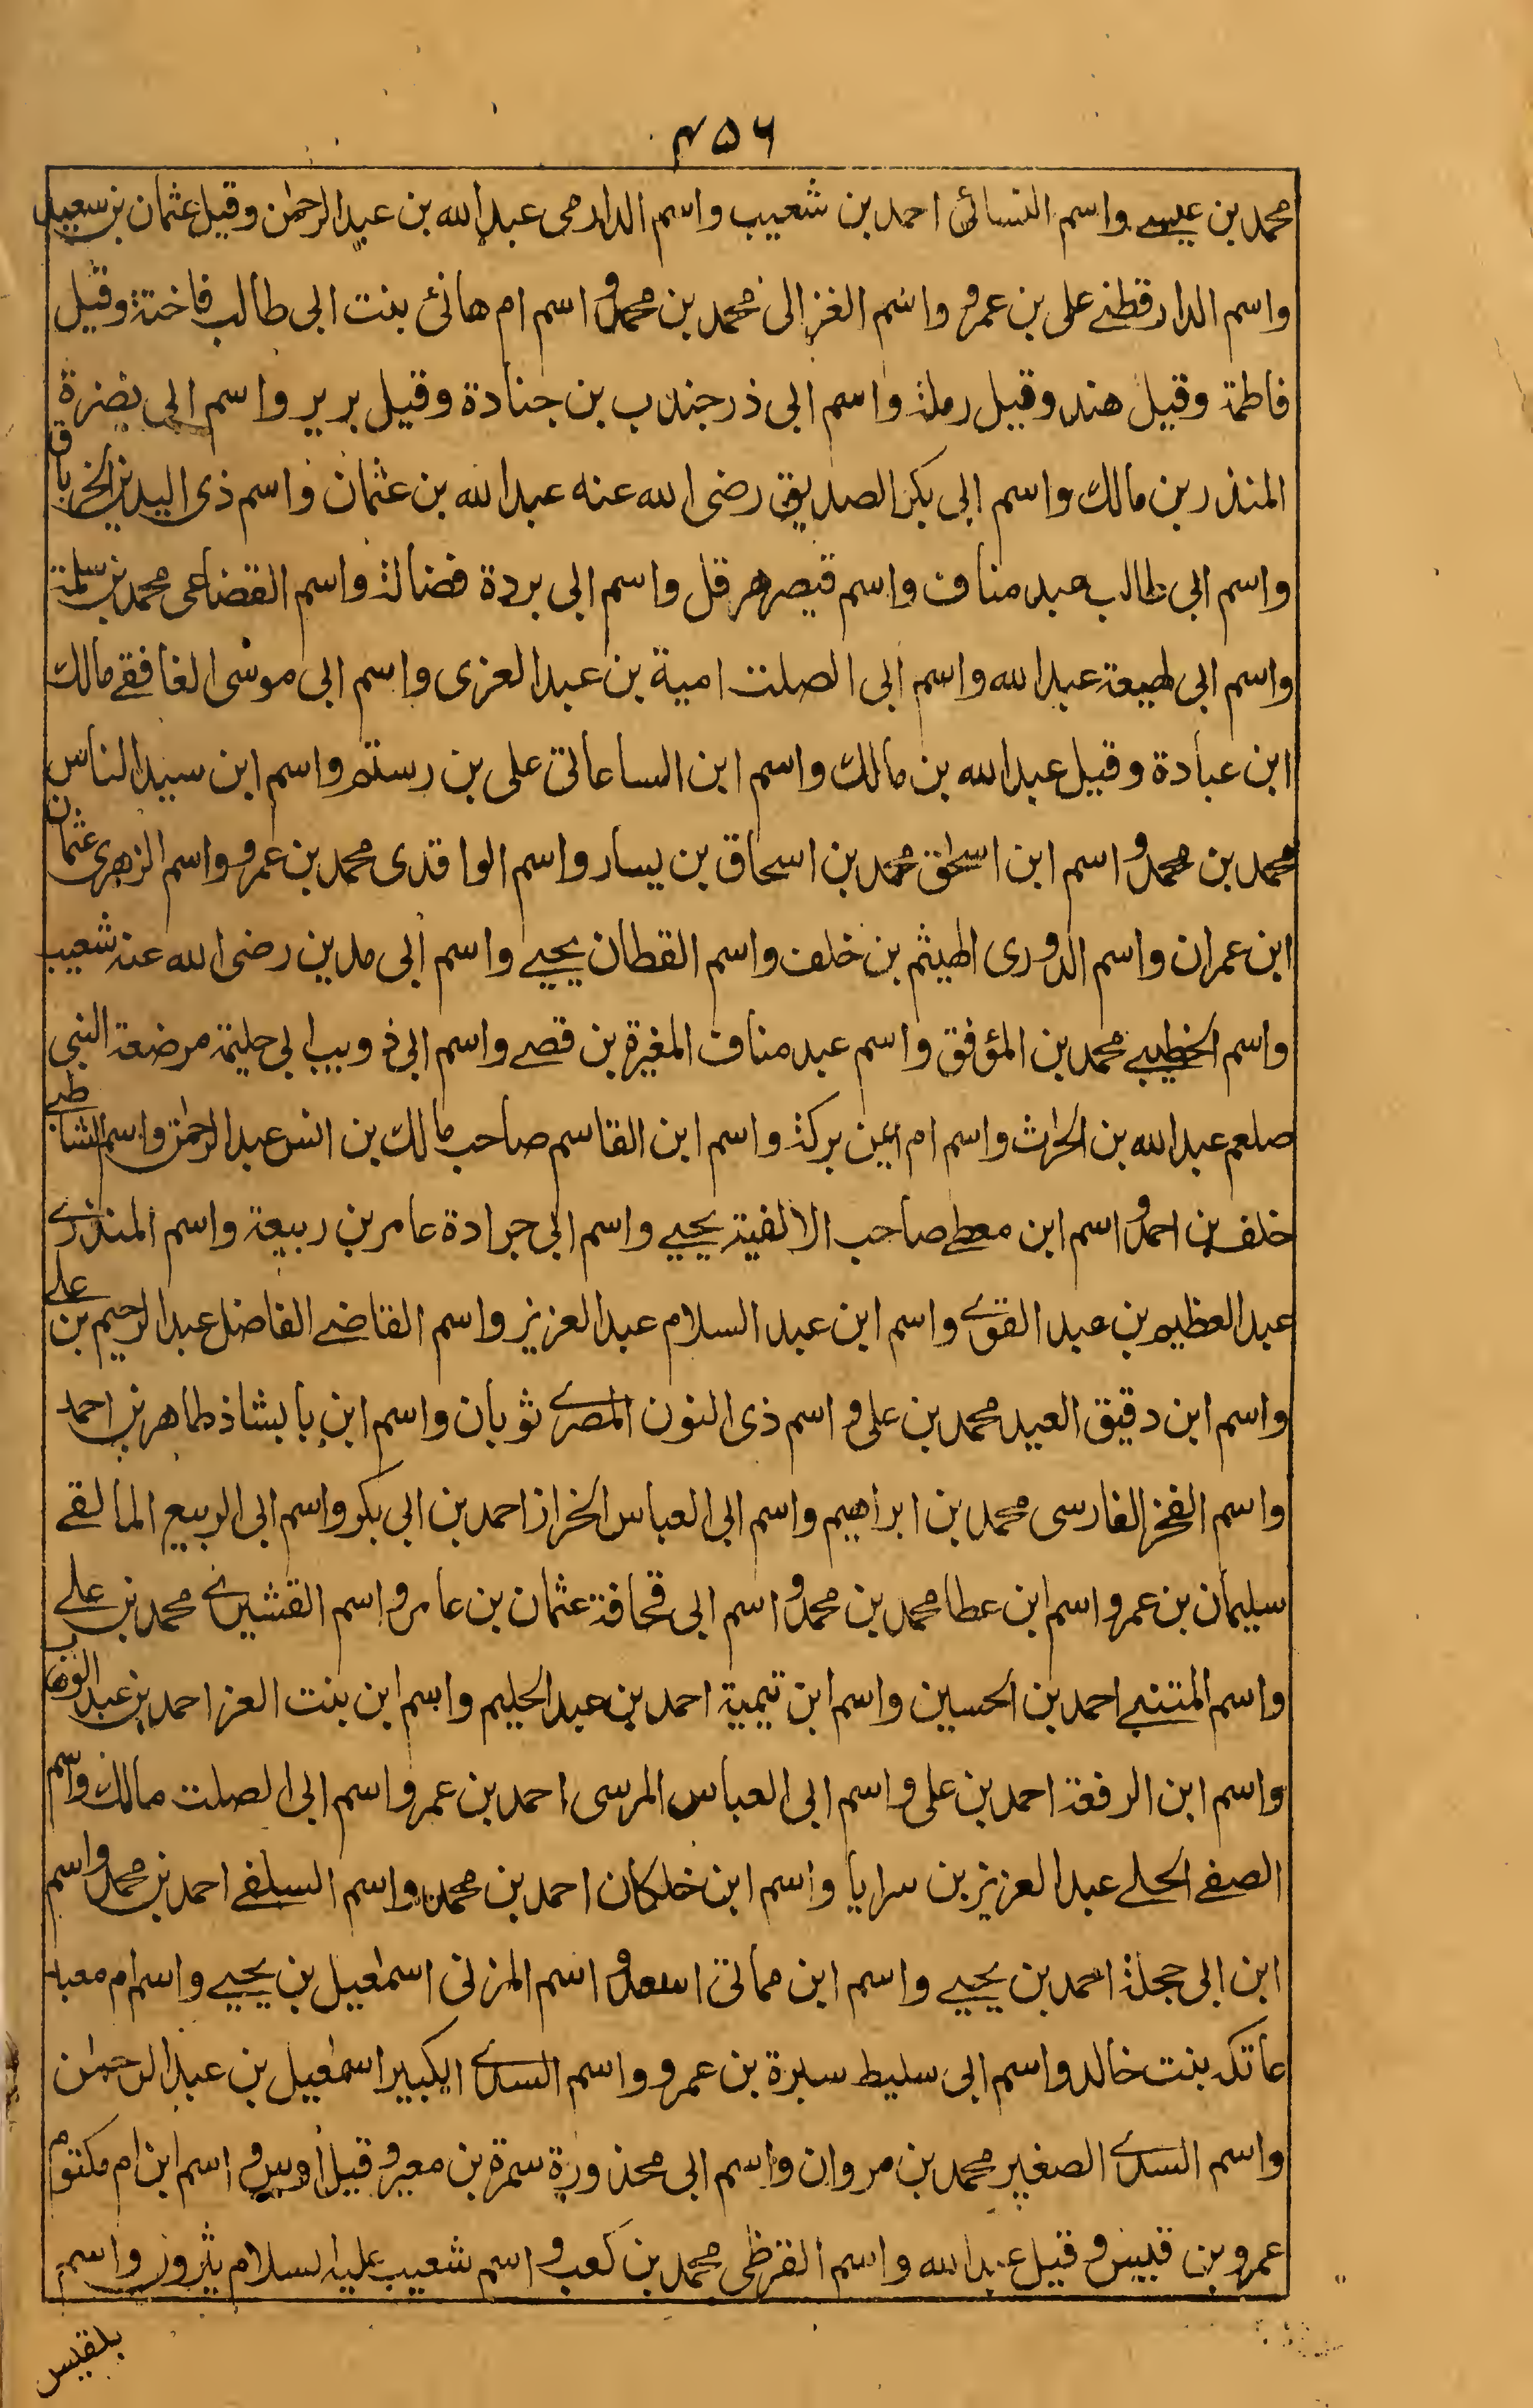 ۴۵۶
محمد بن عيسے واسم النسائى احمد بن شعيب واسم الدارمى عبد الله بن عبد الرحمٰن وقيل عثمان بن سعيد
واسم الدارقطنے على بن عمر و واسم الغزالى محمد بن محمد و اسم ام هانئ بنت ابى طالب فاختة وقيل
فاطمة وقيل هند وقيل رملة واسم ابى ذر جندب بن جنادة وقيل برير واسم ابى بضرة
المنذر بن مالك واسم ابى بكر الصديق رضى الله عنه عبد الله بن عثمان واسم ذى اليدين الخرباق
واسم ابى طالب عبد مناف واسم قيصر هرقل واسم ابى بردة فضالة واسم القضاعى محمد بن سلمة
واسم ابى لهيعة عبد الله واسم ابى الصلت امية بن عبد العزى واسم ابى موسى الغافقے مالك
ابن عبادة وقيل عبد الله بن مالك واسم ابن الساعاتى على بن رستم واسم ابن سيد الناس
محمد بن محمد و اسم ابن اسحٰق محمد بن اسحاق بن يسار واسم الواقدى محمد بن عمر و واسم الزهرى عثمان
ابن عمران واسم الدورى الهيثم بن خلف واسم القطان يحيے واسم ابى مدين رضى الله عنه شعيب
واسم الخطيبے محمد بن المؤفق واسم عبد مناف المغيرة بن قصے واسم ابى ذويب ابى حليمة مرضعة النبى
صلعم عبد الله بن الحرٰث واسم ام ايمن بركة واسم ابن القاسم صاحب مالك بن انس عبد الرحمٰن واسم الشاطبے
خلف بن احمد و اسم ابن معطے صاحب الالفية يحيے واسم ابى جرادة عامر بن ربيعة واسم المنذرے
عبد العظيم بن عبد القوے واسم ابن عبد السلام عبد العزيز واسم القاضے الفاضل عبد الرحيم بن علے
واسم ابن دقيق العيد محمد بن على و اسم ذى النون المصرے ثوبان واسم ابن بابشاذ طاهر بن احمد
واسم الفخر الفارسى محمد بن ابراهيم واسم ابى العباس الخراز احمد بن ابى بكر واسم ابى الربيع المالقے
سليمان بن عمر و اسم ابن عطا محمد بن محمد و اسم ابى قحافة عثمان بن عامر و اسم القشيرے محمد بن علے
واسم المتنبے احمد بن الحسين واسم ابن تيمية احمد بن عبد الحليم واسم ابن بنت العز احمد بن عبد الوهاب
واسم ابن الرفعة احمد بن على و اسم ابى العباس المرسى احمد بن عمر و اسم ابى الصلت مالك واسم
الصفے الحلے عبد العزيز بن سرايا واسم ابن خلكان احمد بن محمد واسم السلفے احمد بن محمد واسم
ابن ابى حجلة احمد بن يحيے واسم ابن مماتى اسعد و اسم المزنى اسمٰعيل بن يحيے واسم ام معبد
عاتكه بنت خالد واسم ابى سليط سبرة بن عمرو واسم السدے الكبير اسمٰعيل بن عبد الرحمٰن
واسم السدے الصغير محمد بن مروان واسم ابى محذورة سمرة بن معير و قيل أوس و اسم ابن ام مكتوم
عمرو بن قيس و قيل عبد الله واسم القرظى محمد بن كعب و اسم شعيب عليه السلام يثرون واسم
بلقيس